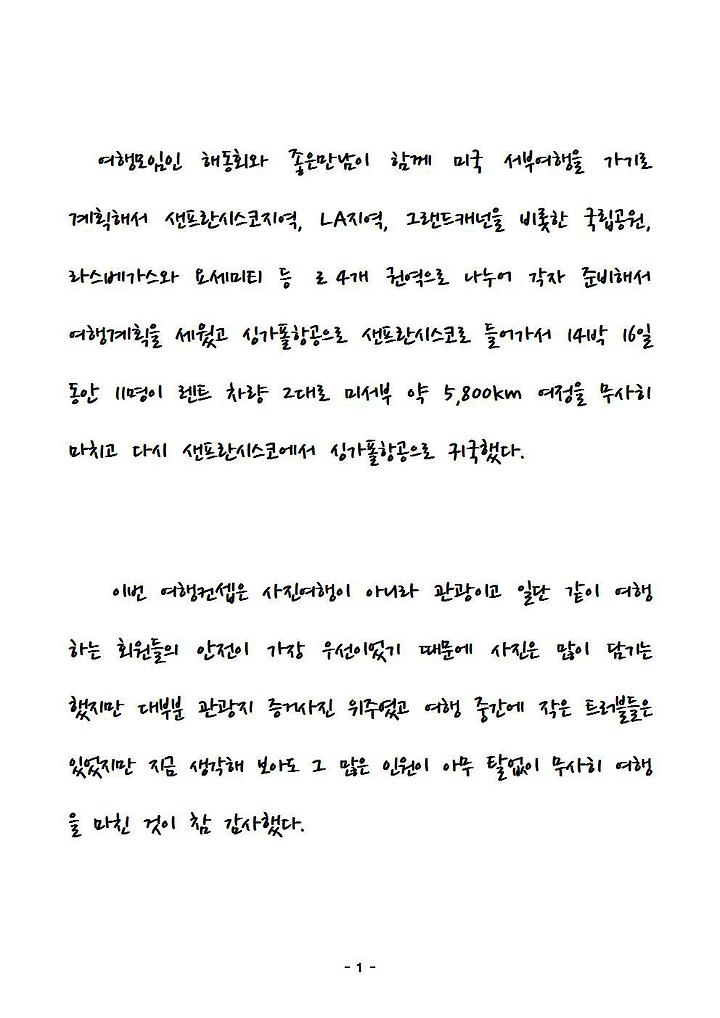 여행모임인 해동회와 좋은만남이 함께 미국 서부여행을 가기로
계획해서 샌프란시스코지역, LA지역, 그랜드캐년을 비롯한 국립공원,
라스베가스와 요세미티 등 ㄹ 4개 권역으로 나누어 각자 준비해서
여행계획을 세웠고 싱가폴항공으로 샌프란시스코로 들어가서 14박 16일
동안 11명이 렌트 차량 2대로 미서부 약 5,800km 여정을 무사히
마치고 다시 샌프란시스코에서 싱가폴항공으로 귀국했다.
이번 여행컨셉은 사진여행이 아니라 관광이고 일단 같이 여행
하는 회원들의 안전이 가장 우선이었기 때문에 사진은 많이 담기는
했지만 대부분 관광지 증거사진 위주였고 여행 중간에 작은 트러블들은
있었지만 지금 생각해 보아도 그 많은 인원이 아무 탈없이 무사히 여행
을 마친 것이 참 감사했다.
- 1 -